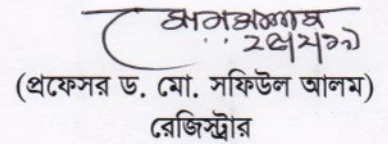 (প্রফেসর ড. মো. সফিউল আলম)
রেজিস্ট্রার